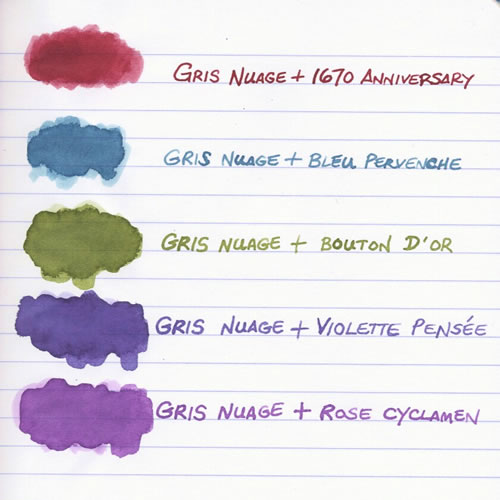 GRIS NUAGE + 1670 ANNIVERSARY
GRIS NUAGE + BLEU PERVENCHE
GRIS NUAGE + BOUTON D'OR
GRIS NUAGE + VIOLETTE PENSÉE
GRIS NUAGE + ROSE CYCLAMEN